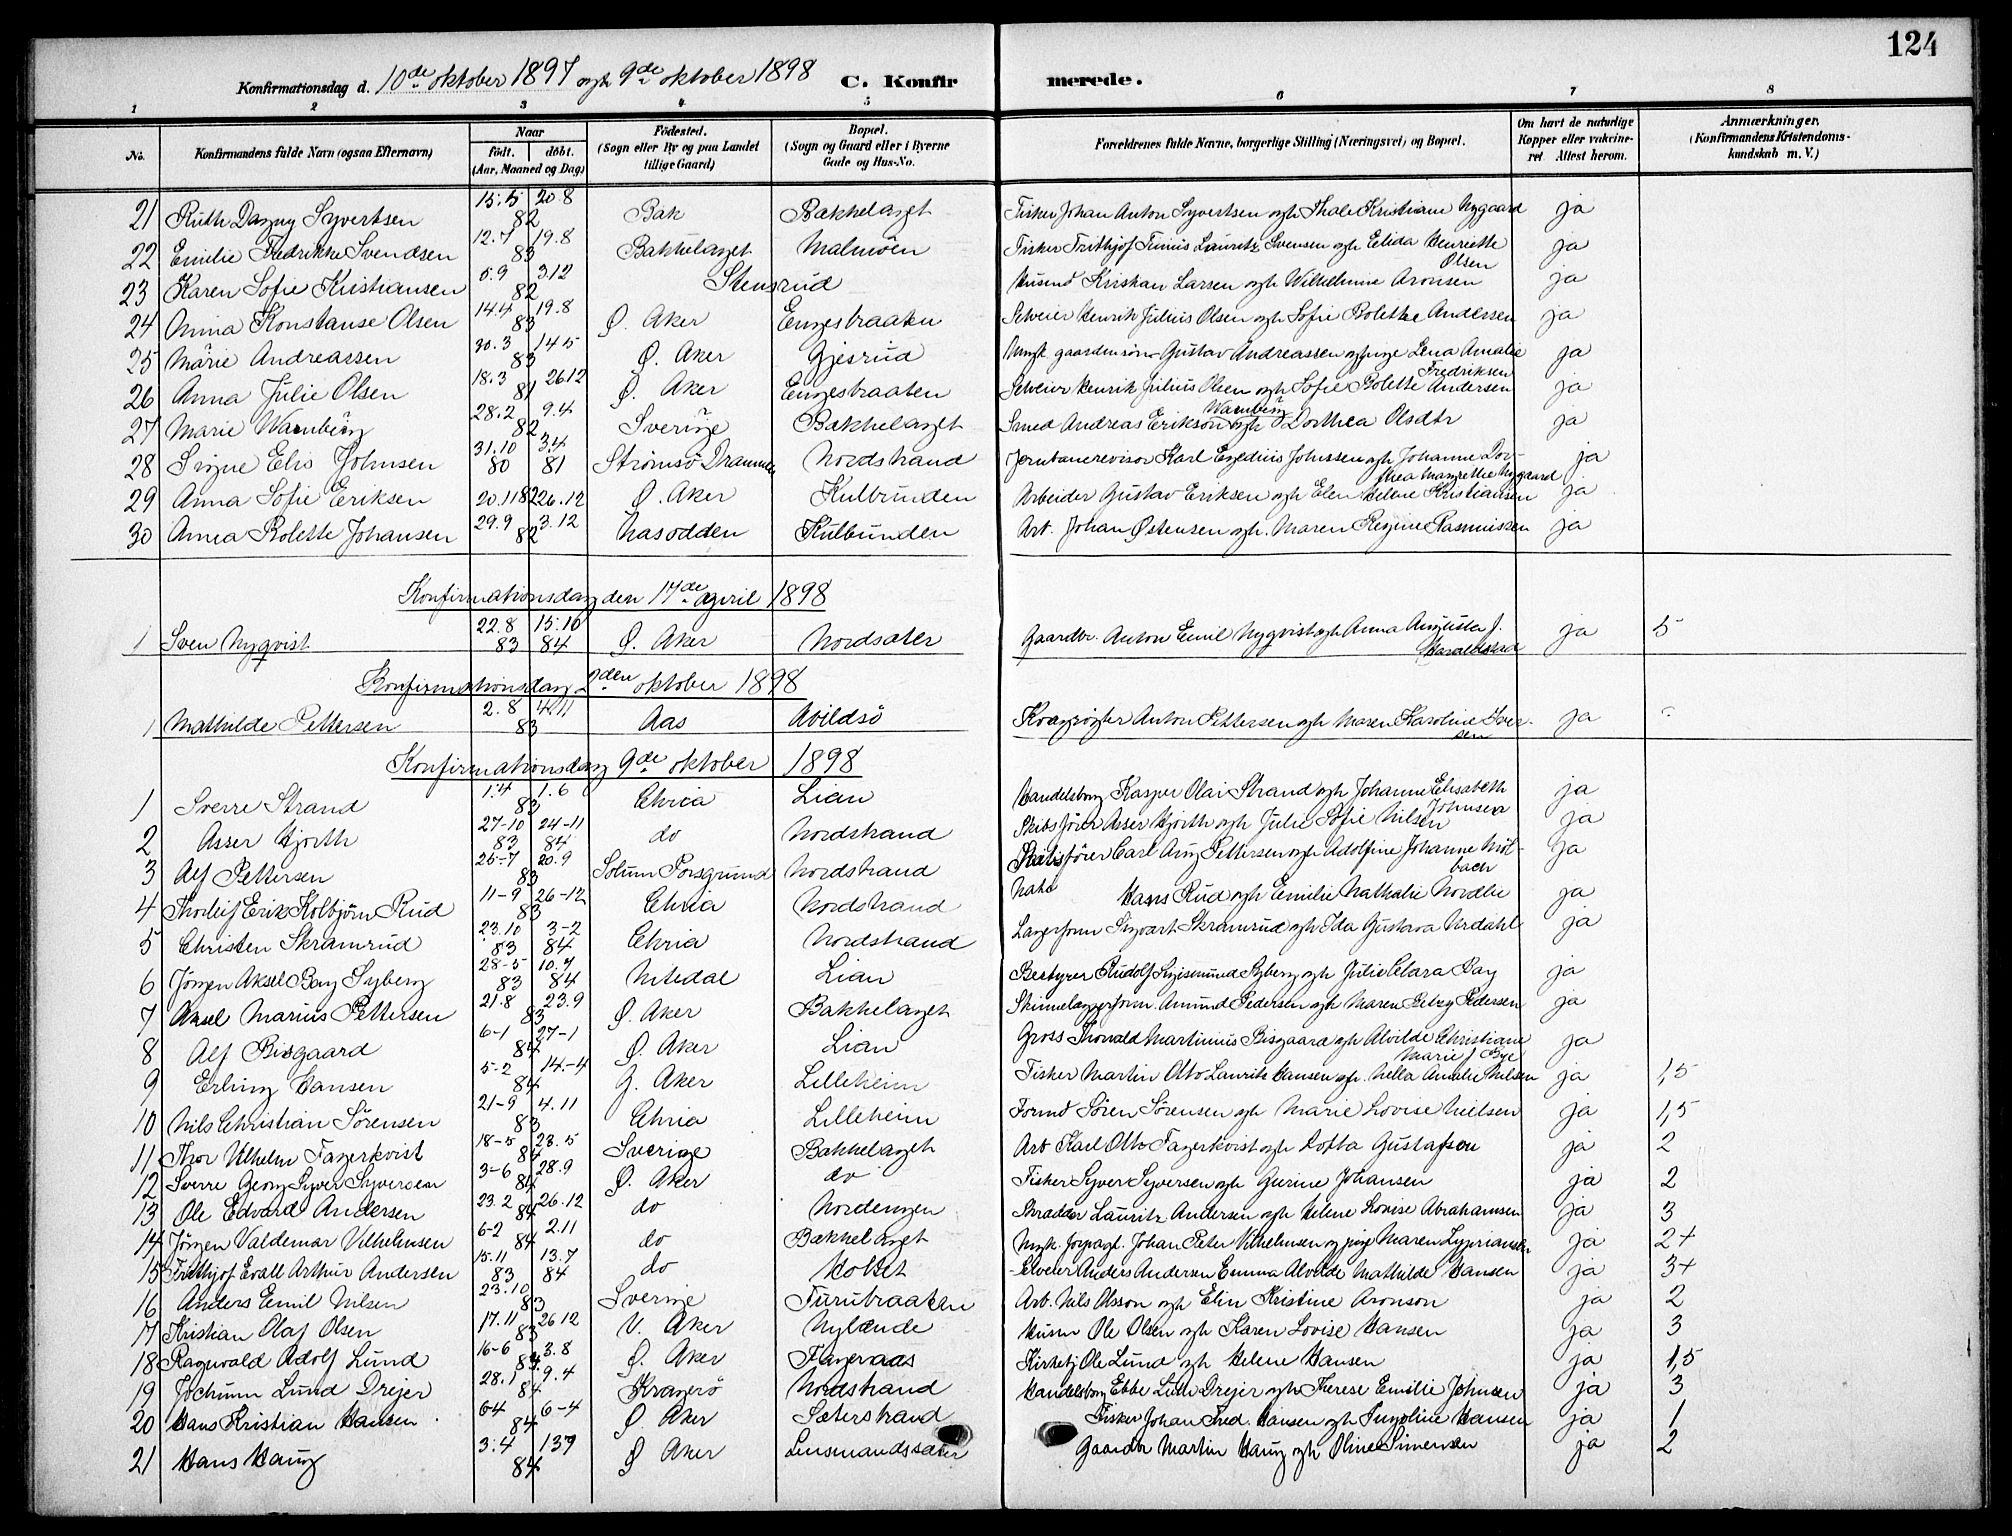 124
Konfirmationsdag d. 10de oktober 1897 ogh 9de oktober 1898 C. Konfirmerede.
1 2 3 4 5 6 7 8
No. Konfirmandens fulde Navn (ogsaa Efternavn) Naar født. døbt. (Aar, Maaned og Dag) Fødested. (Sogn eller By og paa Landet tillige Gaard) Bopæl. (Sogn og Gaard eller i Byerne Gade og Hus-No. Forældrenes fulde Navne, borgerlige Stilling (Næringsvei) og Bopæl. Om havt de naturlige Kopper eller vakcineret Attest herom. Anmærkninger. (Konfirmandens Kristendomskundskab m. V.)
21 Ruth Dagny Syvertsen 15.5 20.8 82 Bak Bækkelaget Fisker Johan Anton Syvertsen ogh Thale Kristiane Nygaard ja
22 Emilie Fredrikke Svendsen 12.7 19.8 83 Bækkelaget Malmöen Fisker Frithjof Tinius Lauritz Svensen ogh Elida Henriette Olsen ja
23 Karen Sofie Kristiansen 5.9 3.12 82 Stensrud Husmd Kristian Larsen ogh Wilhelmine Aronsen ja
24 Anna Konstanse Olsen 14.4 19.8 83 Ø. Aker Engesbraaten Selveier Henrik Julius Olsen ogh Sofie Bolette Andersen ja
25 Marie Andreassen 30.3 14.5 83 Ø. Aker Gjersrud Ungk. gaardmsøn Gustav Andreassen og pige Lena Amalie Fredriksen ja
26 Anna Julie Olsen 18.3 26.12 81 Ø. Aker Engesbraaten Selveier Henrik Julius Olsen ogh Sofie Bolette Andersen ja
27 Marie Warnberg 28.2 9.4 82 Sverige Bækkelaget Smed Andreas Erikson Warnberg ogh Dorthea Olsdtr ja
28 Signe Elis Johnsen 31.10 80 3.4 81 Strömsö Drammen Nordstrand Jernbanerevisor Karl Egedius Johnsen ogh Johanne Dorthea Margrethe Nygaard ja
29 Anna Sofie Eriksen 20.11 82 26.12 Ø. Aker Kulbunden Arbeider Gustav Eriksen ogh Elen Helene Kristiansen ja
30 Anna Bolette Johansen 29.9 3.12 82 Næsodden Kulbunden Arb. Johan Østensen ogh. Maren Regine Rasmussen ja
Konfirmationsdag den 17de april 1898
1 Sven Nyqvist 22.8 83 15.10 84 Ø. Aker Nordsæter Gaardbr. Anton Emil Nyqvist ogh Anna Augusta J. ja 5
Konfirmationsdag 2den oktober 1898
1 Mathilde Pettersen 2.8 4.11 83 Aas Abildsö Anton Pettersen ogh Maren Karoline Iversen ja
Konfirmationsdag 9de oktober 1898
1 Sverre Strand 1.4 1.6 83 Chria Lian Handelsborg Kasper Olai Strand ogh Johanne Elisabeth Johnsen ja
2 Asser Hjorth 27-10 83 24-11 84 do Nordstrand Skibsfører Asser Hjorth ogh Julie Sofie Nilsen ja
3 Alf Pettersen 25-7 20.9 83 Solum Porsgrund Nordstrand Skibsfører Carl Aug Pettersen ogh Adolfine Johanne Mölbach ja
4 Thorleif Erik Kolbjørn Rud 11-9 26-12 83 Chria Nordstrand Hans Rud ogh Emilie Nathalie Nordlie ja
5 Christen Skramrud 23.10 83 3-2 84 Chria Nordstrand Lagerform Sigvart Skramrud ogh Ida Gustava Urdahl ja
6 Jörgen Aksel Bay Syberg 28-5 83 10.7 84 Nitedal Lian Bestyrer Rudolf Sigismund Syberg ogh Julie Clara Bay ja
7 Aksel Marius Pettersen 21.8 23.9 83 Ø. Aker Bækkelaget Amund Pedersen ogh Maren Pedersen ja
8 Alf Bisgaard 6-1 27-1 84 Ø. Aker Lian Gross Thorvald Martinius Bisgaard ogh Alvilde Christiane Marie J Bye ja
9 Erling Hansen 5-2 14.-4 84 Ø. Aker Lilleheim Fisker Martin Otto Lauritz Hansen ogh. Nella Amalie Nilsen ja 1,5
10 Nils Christian Sörensen 21-9 4.11 83 Chria Lilleheim Formd Sören Sörensen ogh Marie Lovise Nielsen ja 1,5
11 Thor Vilhelm Fagerkvist 18-5 23.5 84 Sverige Bækkelaget Arb Karl Otto Fagerkvist ogh Lotta Gustafson ja 2
12 Sverre Georg Syver Syversen 3-6 28.9 84 Ø. Aker do Fisker Syver Syversen ogh Gurine Johansen ja 2
13 Ole Edvard Andersen 23.2 26.12 84 do Nordengen Skrædder Lauritz Andersen ogh Helene Lovise Abrahamsen ja 3
14 Jörgen Valdemar Vilhelmsen 6-2 2.11 84 do Bækkelaget Ungk. forpagt. Johan Peter Vilhelmsen og pige Maren ja 2+
15 Frithjof Evall Arthur Andersen 15.11 83 13.7 84 do Holtet Selveier Anders Andersen Emma Alvilde Mathilde Hansen ja 3+
16 Anders Emil Nilsen 23.10 83 Sverige Furubraaten Arb. Nils Olsson ogh Elin Kristine Aronson ja 2
17 Kristian Olaf Olsen 17.11 26 12 83 V. Aker Nylænde Husm Ole Olsen ogh Karen Lovise Hansen ja 3
18 Ragnvald Adolf Lund 16-6 3.8 84 Ø. Aker Fageraas Kirketj Ole Lund ogh Helene Hansen ja 1,5
19 Jochum Lund Drejer 28.1 9.4 84 Kragerö Nordstrand Handelsborg Ebbe Lund Drejer ogh Therese Emilie Johnsen ja 3
20 Hans Kristian Hansen 6-4 6-4 84 Ø Aker Sæterstrand Fisker Johan Fred. Hansen ogh Hansen ja 1
21 Hans Haug 3.4 13.9 84 Ø Aker Lensmandssæter Gaardbr Martin Haug ogh Oline Simensen ja 2